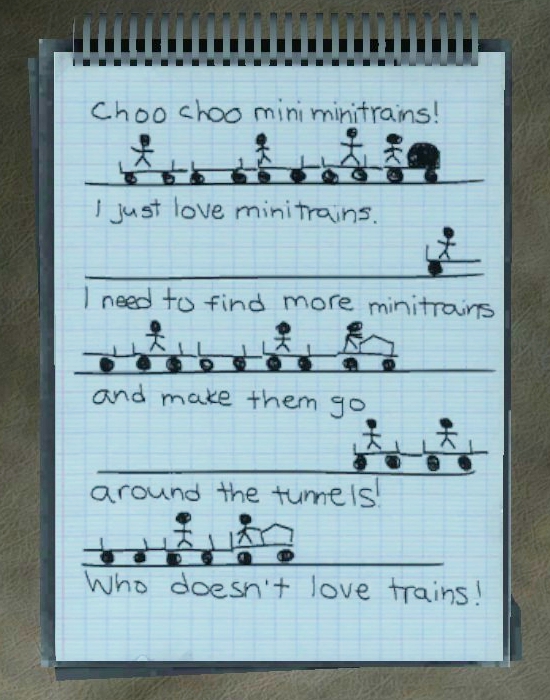 Choo choo mini minitrains!
I just love minitrains.
I need to find more minitrains
and make them go
around the tunnels!
Who doesn't love trains!